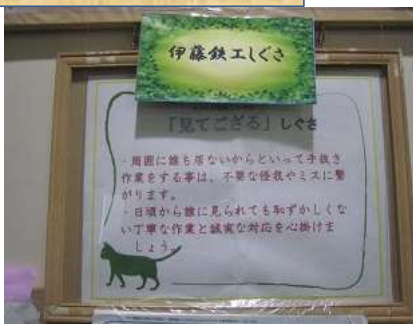 伊藤鉄工しぐさ
「見てござる」しぐさ
・周囲に誰も居ないからといって手抜き
作業をする事は、不要な怪我やミスに繋
がります。
・日頃から誰に見られても恥ずかしくな
い丁寧な作業と誠実な対応を心掛けま
しょう。